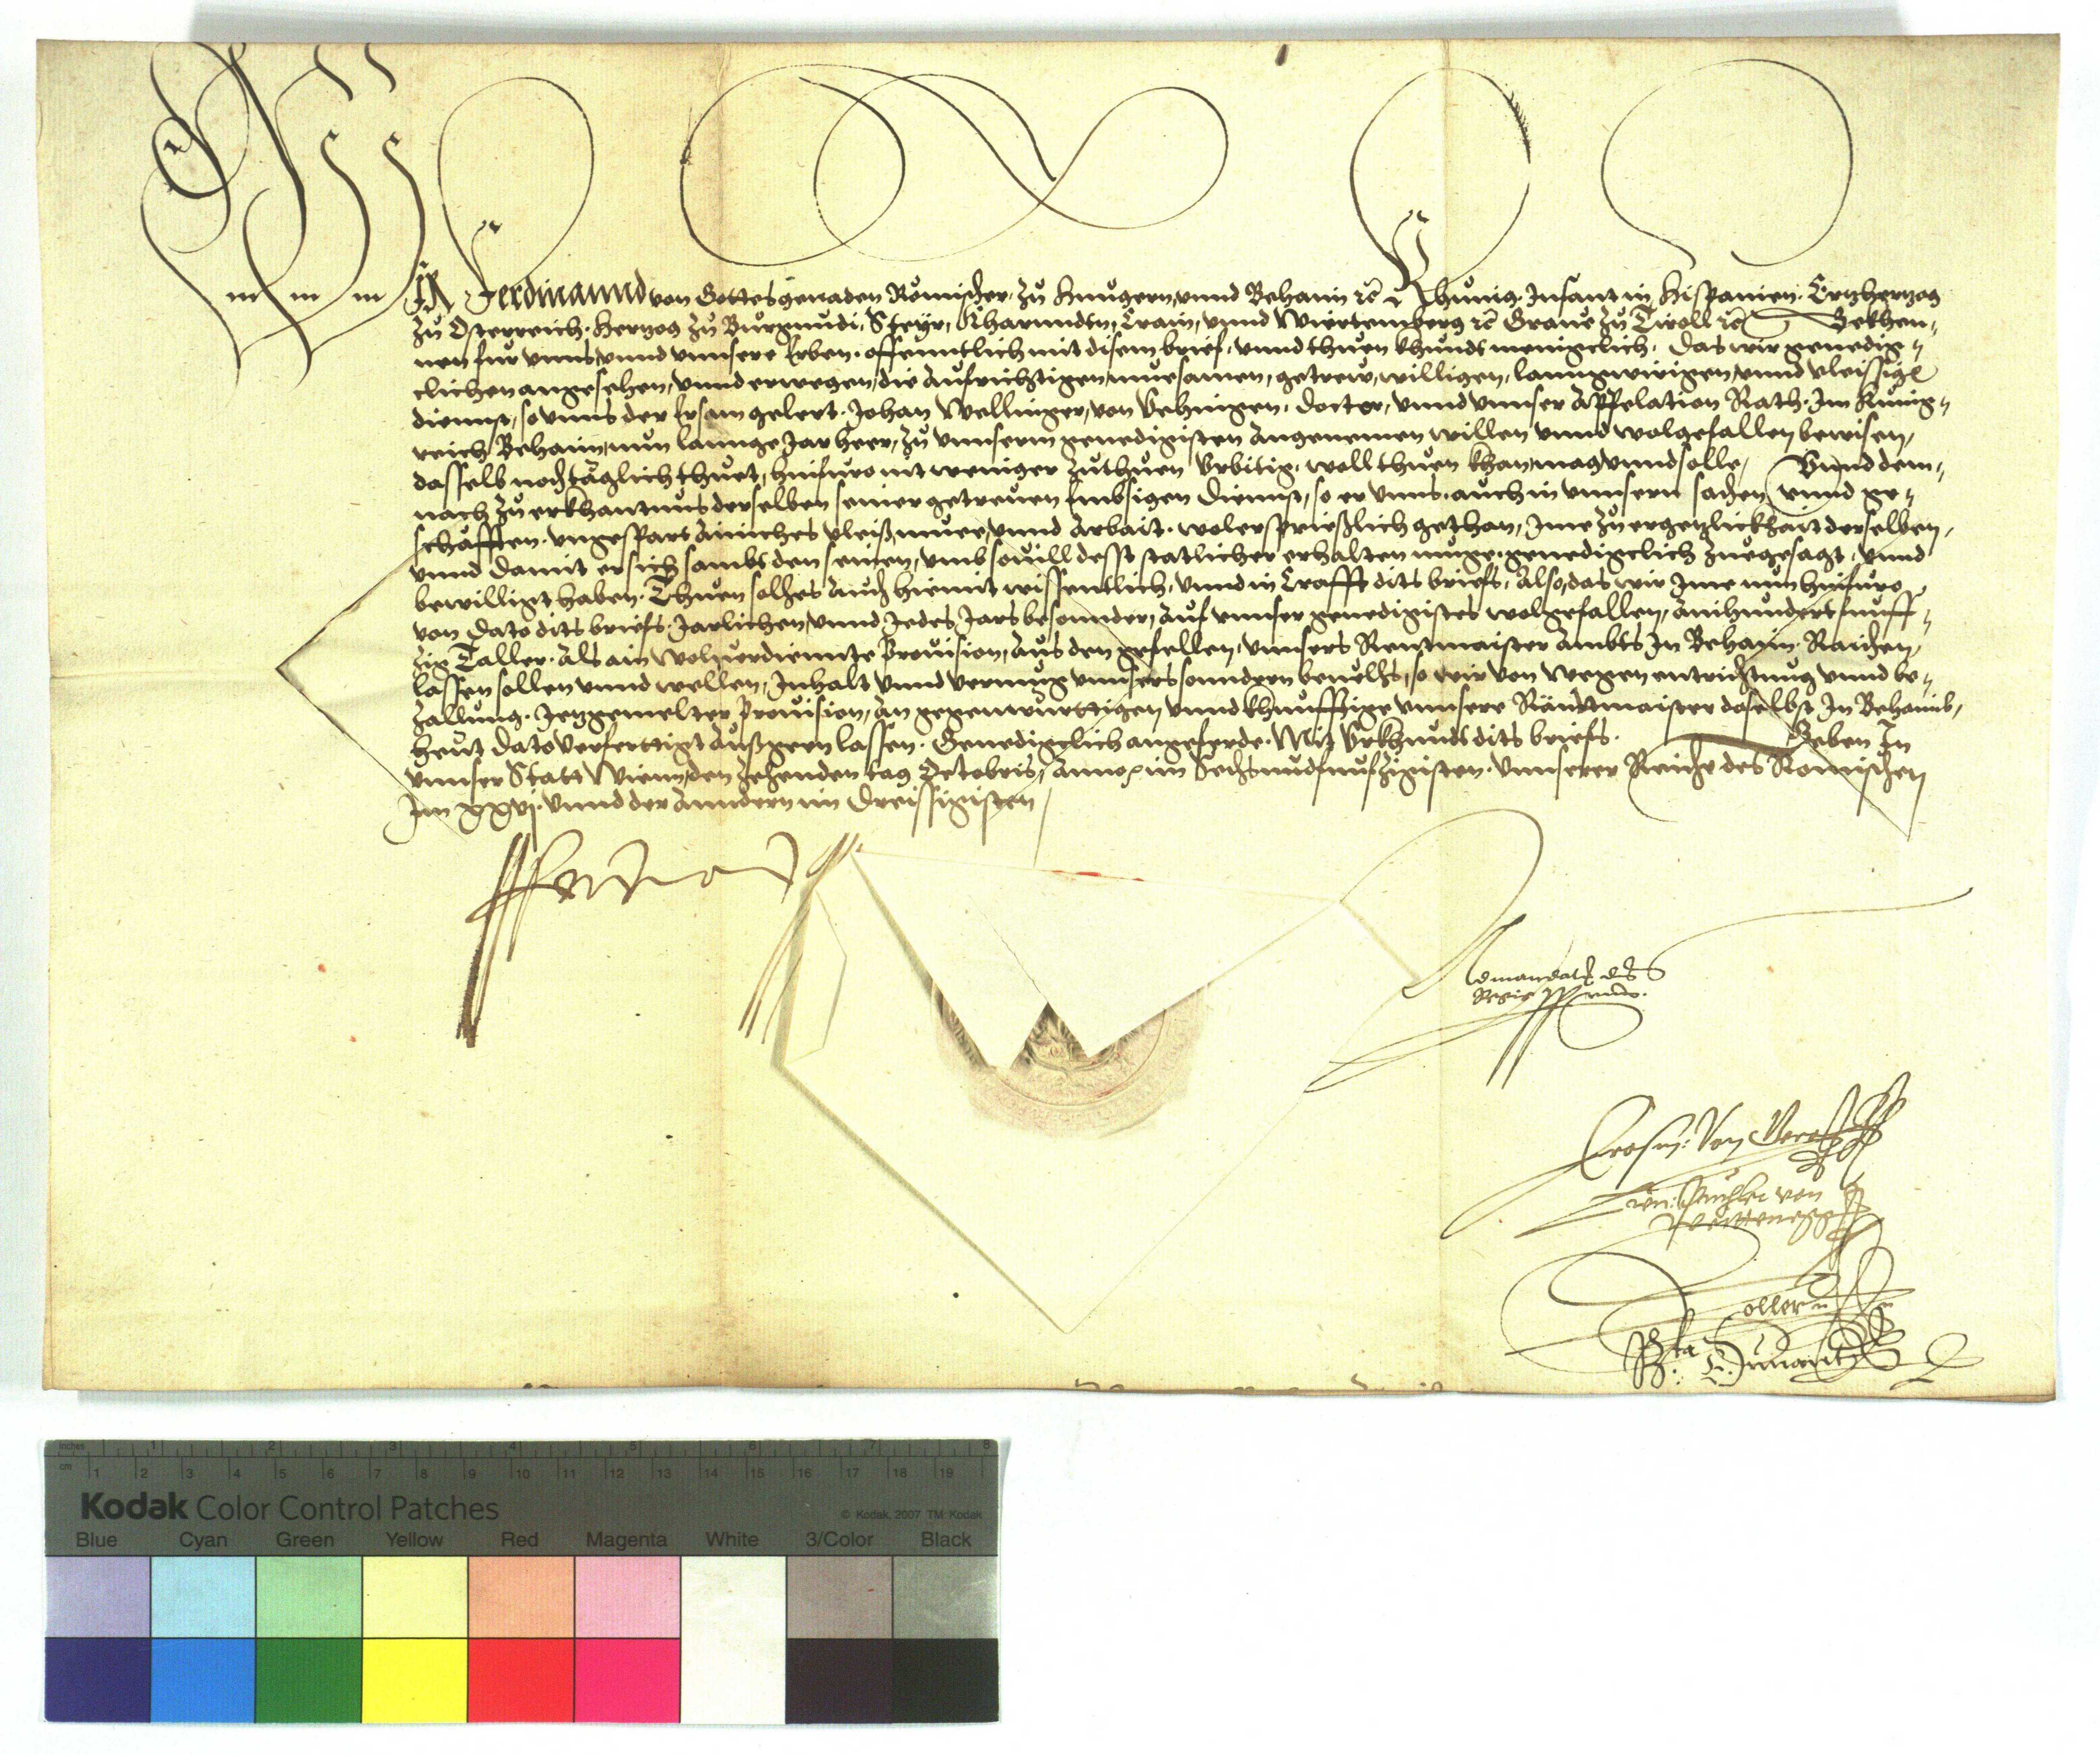 WIR Ferdinannd von Gottes genaden Römischer, zu Hungern, unnd Behaim rc Khunig, Infant in Hispanien, Ertzhertzog
zu Österreich, Hertzog zu Burgundi, Steyr, Kharnndtn, Crain, unnd Wiertemberg rc Grave zu Tiroll rc Bekhen-
nen fur unns unnd unnsere Erben offenntlich mit disem brief, unnd thuen khundt menigclich, Das wir genedig-
clichen angesehen, unnd erwegen, die Aufrichtigen, muesamen, getrew, willigen, lanngwirigen, unnd vleissige
diennst, so unns der Ersam gelert Johan Wellinger, von Vehingen, Doctor, unnd unnser Appelation Rath Im Kunig-
reich Behaim, nun lannge Jar heer, zu unnserm genedigisten Angenemen willen unnd wolgefallen bewisen,
dasselb noch täglich thuet, hinfuro nit weniger zuthuen Urbitig, woll thuen khan, mag unnd solle, Unnd dem-
nach zu erkhantnus derselben seiner getreuen Embsigen Diennst, so er unns auch in unnsern sachen unnd ge-
schäfften, ungespart Ainiches vleiß, muee, unnd Arbait, wolersprießlich gethan, Ime zu ergetzlickhait derselben,
unnd damit er sich sambt den seinen, umb sovill desst statlicher erhalten muge, genedigclich zuegesagt, unnd
bewilligt haben. Thuen solhes Auch hiemit wissentlich, unnd in Crafft dits briefs, Also, das wir Ime nun hinfuro
von dato dits briefs, Jarlichen, unnd Jedes Jars besonnder, Auf unnser genedigistes wolgefallen, Ainhundertfunff-
zig Taller, Als ain wolverdiennte Provision, Aus den gefellen, unnsers Rentmaister Ambts In Behaim, Raichen,
lassen sollen unnd wellen, Inhalt unnd vermug unnsers sonndern bevelhs, so wir von wegen entrichtung unnd be-
zallung, Jetzgemelter Provision, An gegenwurttigen, unnd khunfftige unnsere Rändtmaister daselbst In Behaimb,
heut dato verferttigt Außgeen lassen. Genedigclich angeferde. Mit Urkhundt dits briefs. Geben In
unnser Statt Wienn, den zehenden tag Octobris, Anno im Sechsundfunfzigisten, Unnserer Reiche des Römischen
Im xxvj. unnd der Anndern im Dreissigisten
Ferdinand
Ad mandatu dni
Regis
Erasm: Von
von
Inches 1 2 3 4 5 6 7 8
cm 1 2 3 4 5 6 7 8 9 10 11 12 13 14 15 16 17 18 19
Kodak Color Control Patches © Kodak, 2007 TM: Kodak
Blue Cyan Green Yellow Red Magenta White 3/Color Black